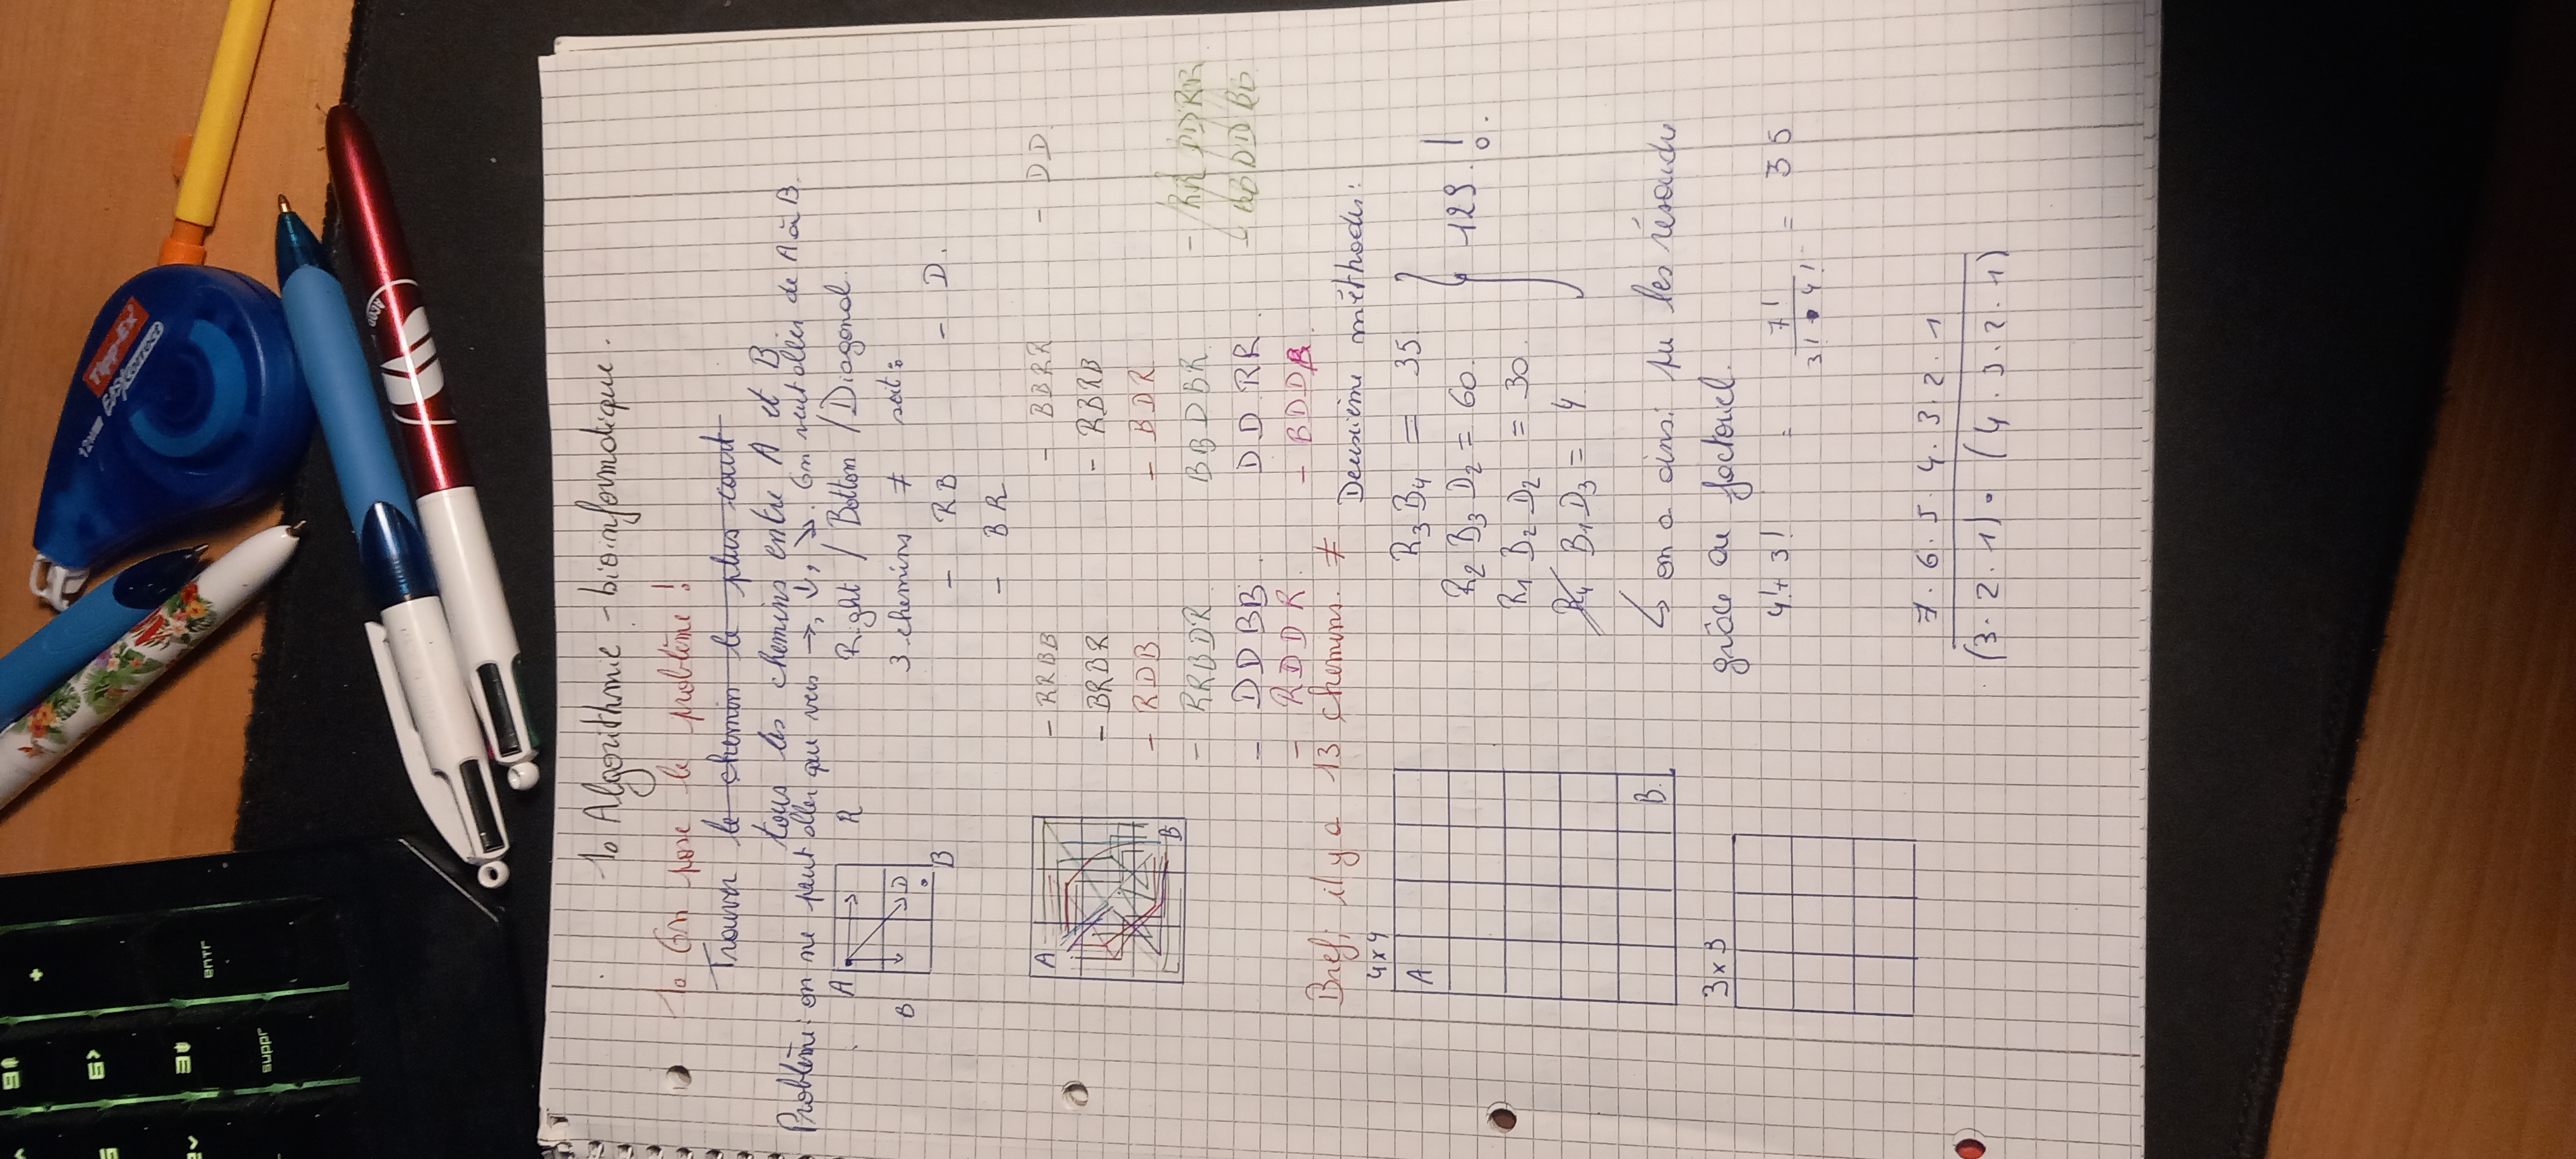 9
+
6
3
entr
suppr
12M
Tipp-Ex
Easycorrect
1. Algorithmie - bioinformatique.
1. On pose le problème !
Trouver le chemin le plus court
tous les chemins entre A et B.
Problème : on ne peut aller que vers →, ↓, ↘. On veut aller de A à B.
A R Right / Bottom / Diagonal.
B D 3 chemins ≠ soit :
B - RB - D.
- BR
A - RRBB - BBRR - DD
- BRBR - RBRB
- RDB - BDR
B - RRBDR BBDBR - RR DD RR
- DDBB. DD RR. - BB DD BB
- RDDR. - BDDB.
Bref, il y a 13 chemins. ≠
Deuxième méthode :
4x4
A R3 B4 = 35
R2 B3 D2 = 60. 129. !
R1 B2 D2 = 30.
R4 B1 D3 = 4
B. ↳ on a ainsi pu les résoudre
3 x 3 grâce au factoriel.
4! + 3! = 7! / 3! • 4! = 35
7. 6. 5. 4. 3. 2. 1
(3. 2. 1) • (4. 3. 2. 1)